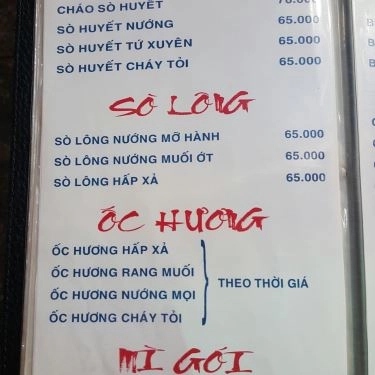 CHÁO SÒ HUYẾT
SÒ HUYẾT NƯỚNG 65.000
SÒ HUYẾT TỨ XUYÊN 65.000
SÒ HUYẾT CHÁY TỎI 65.000
SÒ LÔNG
SÒ LÔNG NƯỚNG MỠ HÀNH 65.000
SÒ LÔNG NƯỚNG MUỐI ỚT 65.000
SÒ LÔNG HẤP XẢ 65.000
ỐC HƯƠNG
ỐC HƯƠNG HẤP XẢ
ỐC HƯƠNG RANG MUỐI
THEO THỜI GIÁ
ỐC HƯƠNG NƯỚNG MỌI
ỐC HƯƠNG CHÁY TỎI
MÌ GÓI